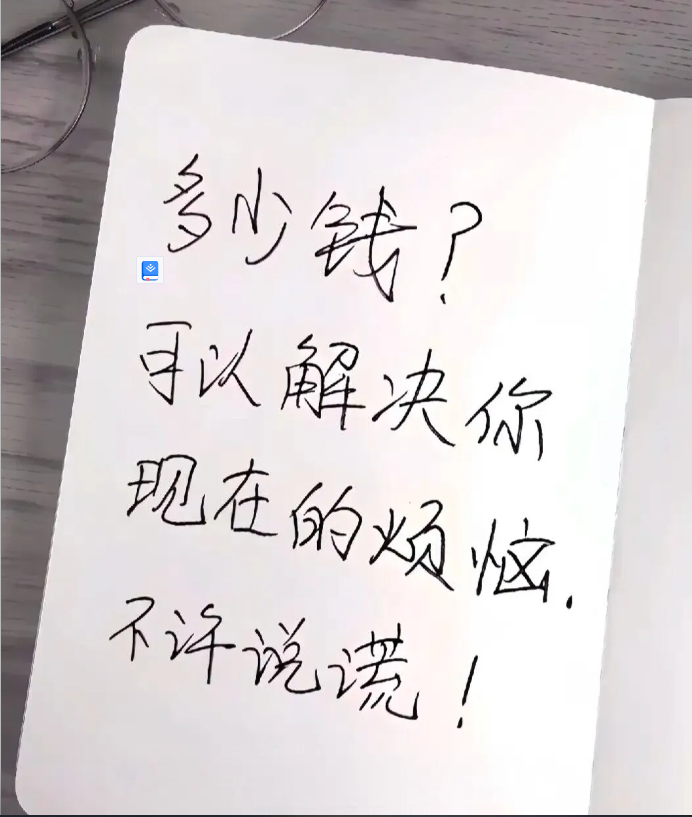 多少钱?
可以解决你
现在的烦恼.
不许说谎!